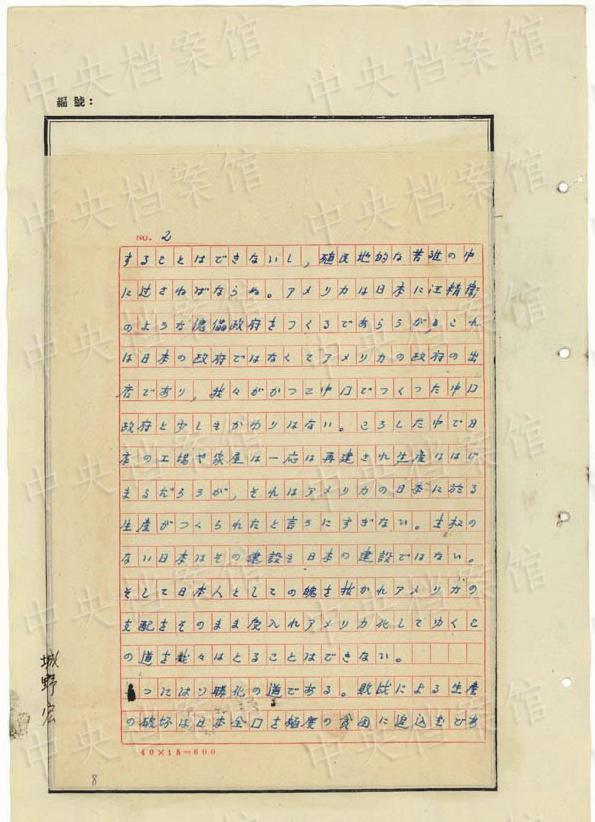 中央档案馆 中央档案馆
編號：
NO. 2
することはできないし，殖民地的な苦難の中
に过さねばならぬ。アメリカは日本に汪精衛
のような傀儡政府をつくるであらうがこれ
は日本の政府ではなくてアメリカの政府の出
店であり，我々がかつて中口でつくった中口
政府と少しもかわりはない。こうした中で日
本の工場や家屋は一応は再建され生産ははじ
まるだろうが，それはアメリカの日本に於る
生産がつくられたと言うにすぎない。主权の
ない日本はその建設も日本の建設ではない。
そして日本人としての魂を抜かれアメリカの
支配をそのまま受入れアメリカ化してゆくこ
の道を我々はとることはできない。
つにはソ聯化の道である。敗战による生産
の破坏は日本全口を極度の貧困に追込むであ
40×15=600
城野宏
8